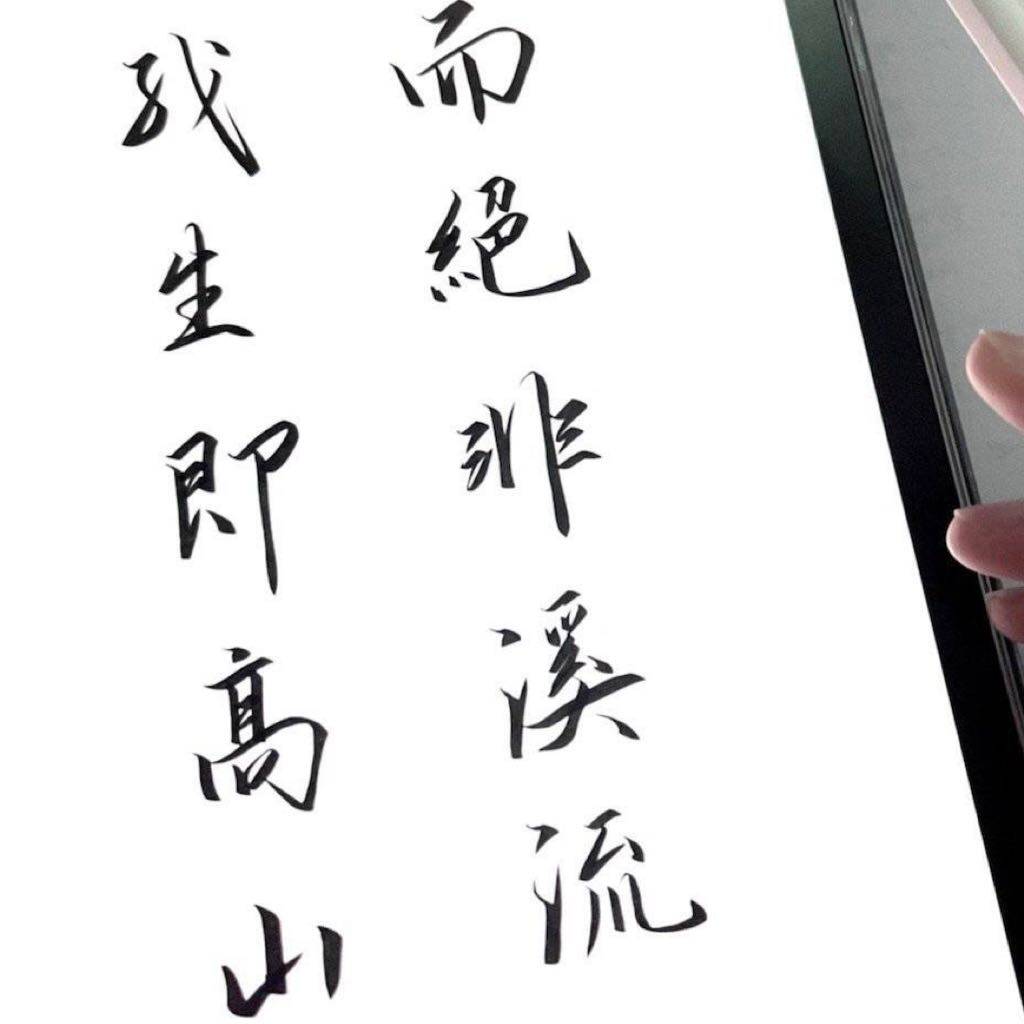 我生即高山
而絕非溪流